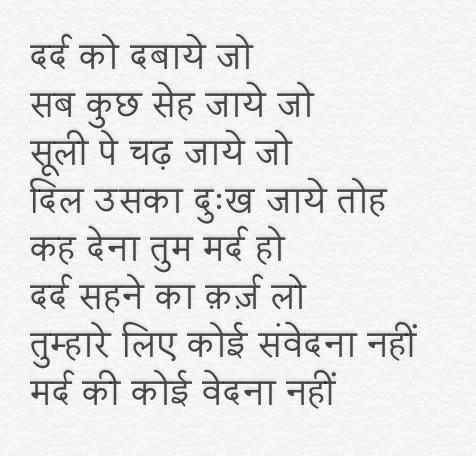 दर्द को दबाये जो
सब कुछ सेह जाये जो
सूली पे चढ़ जाये जो
दिल उसका दुःख जाये तोह
कह देना तुम मर्द हो
दर्द सहने का क़र्ज़ लो
तुम्हारे लिए कोई संवेदना नहीं
मर्द की कोई वेदना नहीं